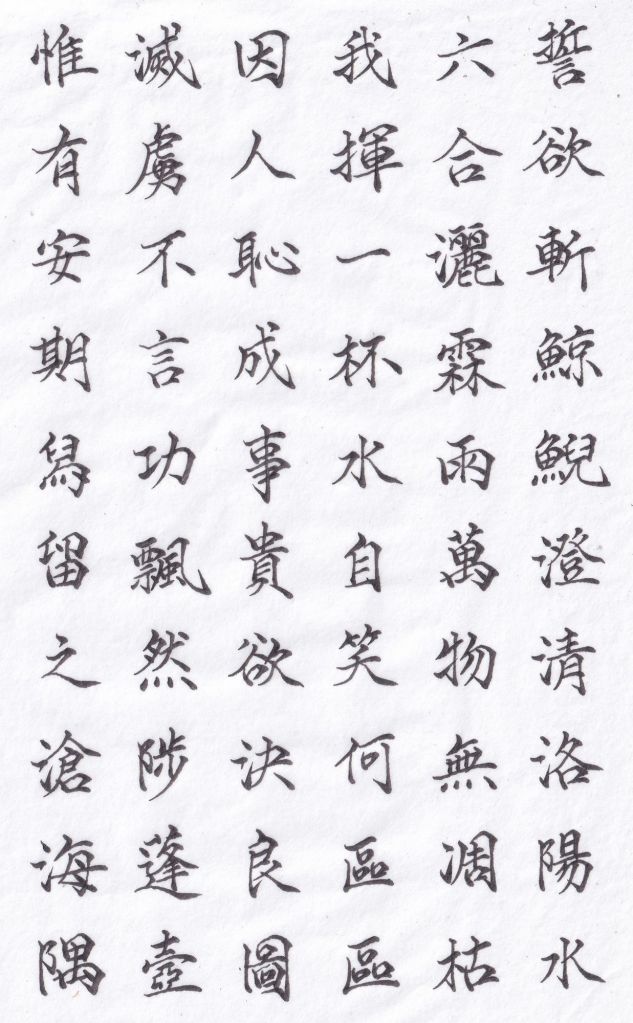 誓欲斬鯨鯢澄清洛陽水
六合灑霖雨萬物無凋枯
我揮一杯水自笑何區區
因人恥成事貴欲決良圖
滅虜不言功飄然陟蓬壺
惟有安期舄留之滄海隅